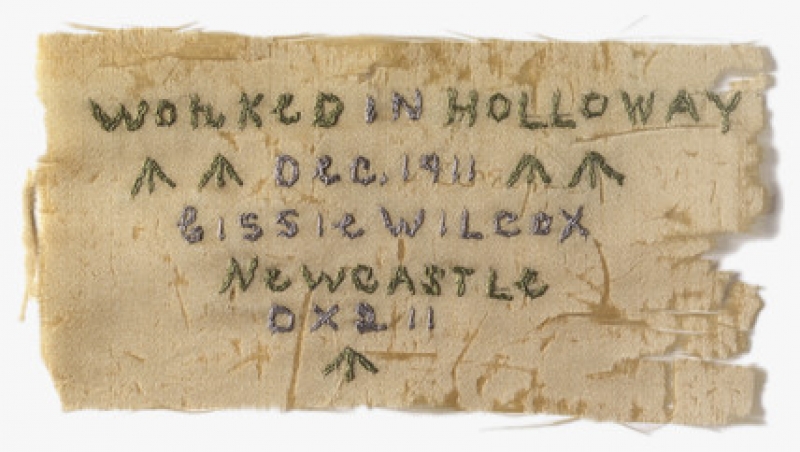 WORKeD IN HOLLOWAY
Dec. 1911
CISSIe WILCOX
NeWCASTLe
DX2 11